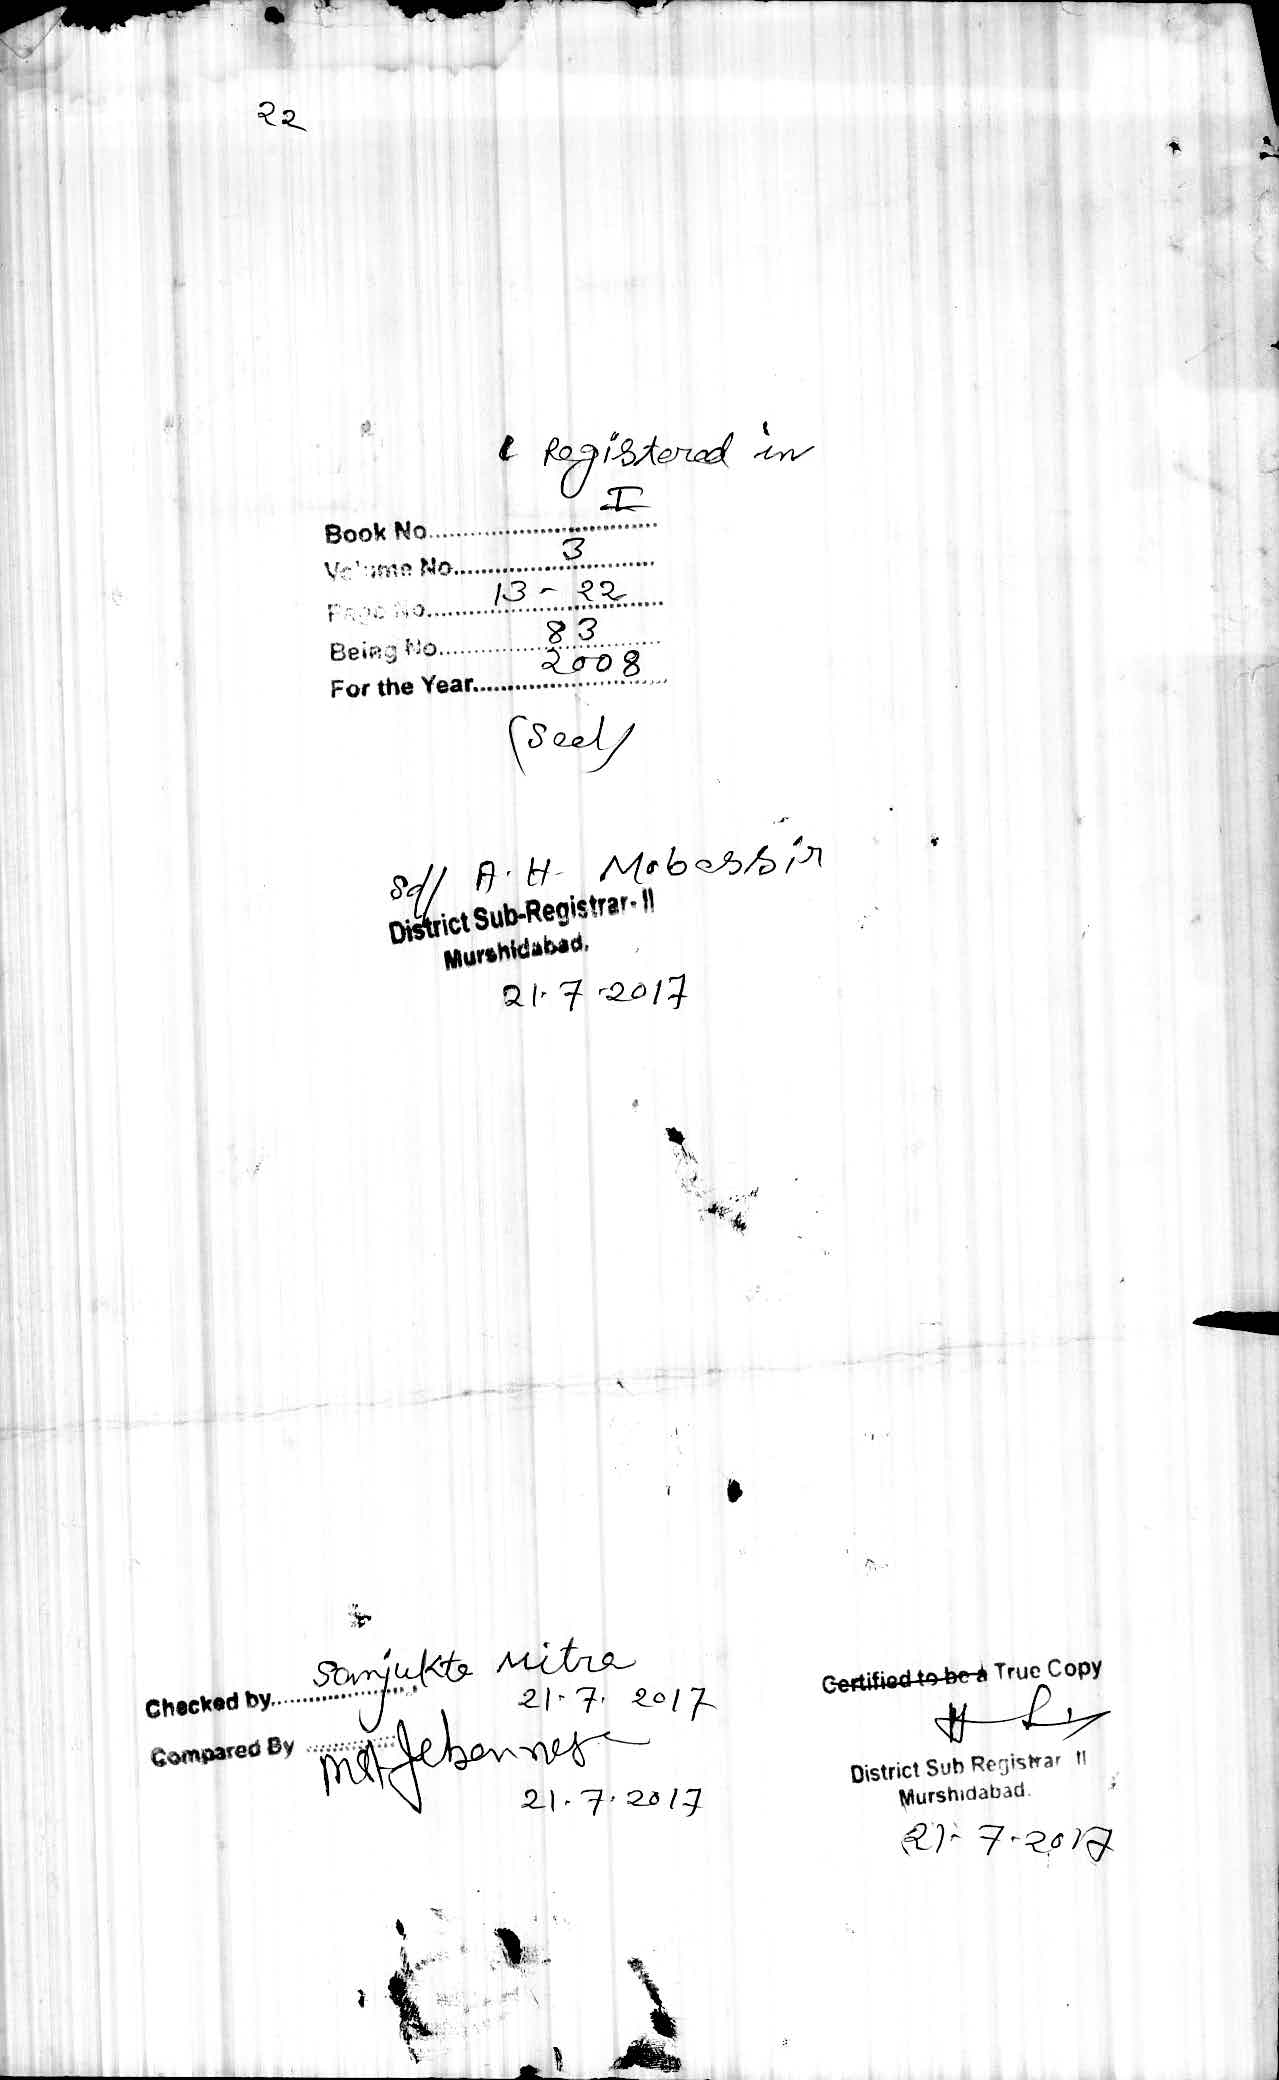 22
Registered in
I
Book No..............................
3
Volume No..............................
13 - 22
Page No..............................
83
Being No..............................
2008
For the Year..............................
(Seal)
Sd/ A. H. Mobassir
District Sub-Registrar- II
Murshidabad.
21.7.2017
Sanjukta Mitra
Checked by....................
21.7.2017
Compared By ............
21.7.2017
Certified to be a True Copy
District Sub Registrar II
Murshidabad.
21-7-2017